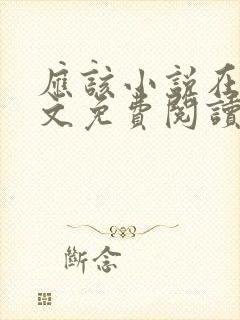 應該小說在
文免費閱讀
斷念